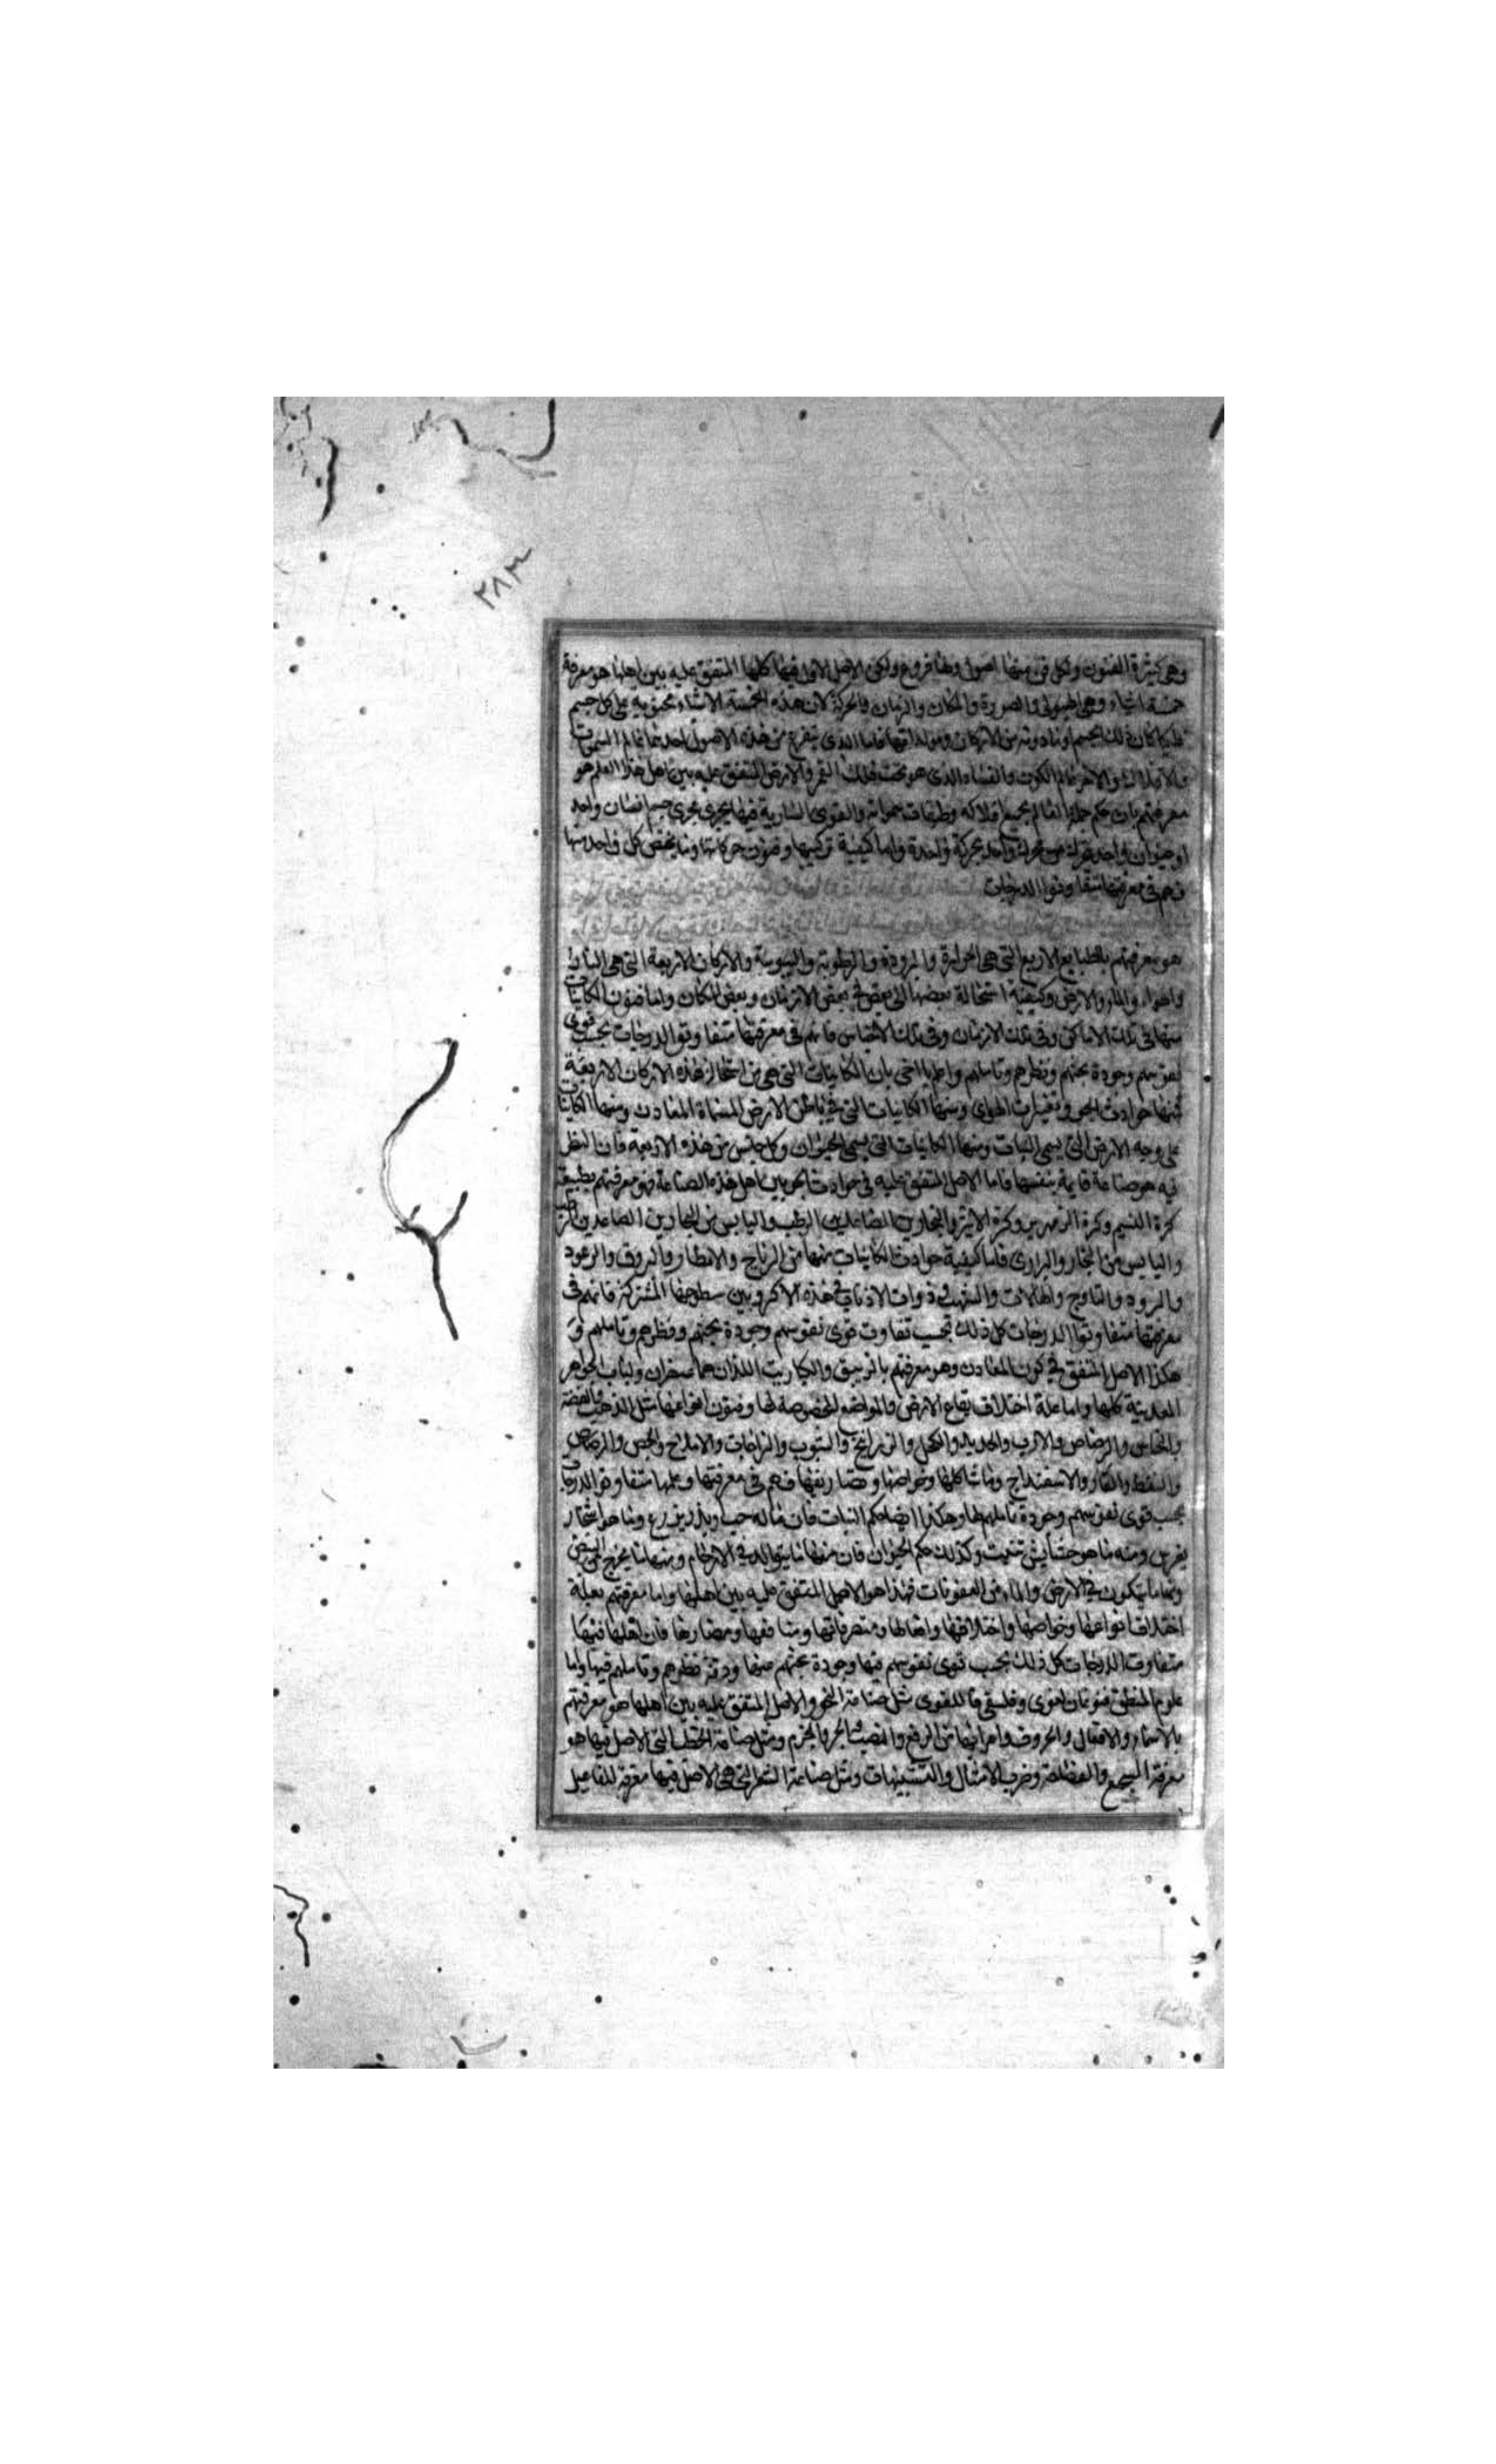 ٢٨٣
وهي كثيرة الفنون ولكل فن منها اصول ولها فروع ولكن الاصل الاول فيها كلها المتفق عليه بين اهلها هو معرفة
خمسة اشياء وهي الهيولى والصورة والمكان والزمان والحركة لان هذه الخمسة الاشياء محتوية على كل جسم
فلكيا كان ذلك الجسم او ما دونه من الاركان ومولداتها فاما الذى يتفرع من هذه الاصول احدها عالم السموات
والافلاك والاخر عالم الكون والفساد الذى هو تحت فلك القمر والارض المتفق عليه بين اهل هذا العلم هو
معرفتهم بان حكم جملة العالم بجميع افلاكه وطبقات سمواته والقوى السارية فيها يجرى مجرى جسم انسان واحد
او حيوان واحد متحرك من محرك واحد بحركة واحدة واما كيفية تركيبها وفنون حركاتها وما يخص كل واحد منها
فهم فى معرفتها متفاوتوا الدرجات
هو معرفتهم بالطبايع الاربع التى هى الحرارة والبرودة والرطوبة واليبوسة والاركان الاربعة التى هى النار
والهواء والماء والارض وكيفية استحالة بعضها الى بعض فى بعض الازمان وبعض المكان واما فنون الكاينات
منها فى تلك الاماكن وفى تلك الازمان وفى تلك الاجناس فانهم فى معرفتها متفاوتو الدرجات بحسب قوى
نفوسهم وجودة بحثهم ونظرهم وتاملهم واعلم يا اخى بان الكاينات التى هى من استحالة هذه الاركان الاربعة
فمنها حوادث الجو وتغيرات الهواء ومنها الكاينات التى فى باطن الارض المسماة المعادن ومنها الكاينات
على وجه الارض التى يسمى النبات ومنها الكاينات التى يسمى الحيوان وكل جنس من هذه الاربعة فان النظر
فيه هو صناعة قايمة بنفسها فاما الاصل المتفق عليه فى حوادث الجو بين اهل هذه الصناعة فهو معرفتهم بطبيعة
كرة النسيم وكرة الزمهرير وكرة الاثير والبخارين الصاعدين الرطب واليابس من البخارين الصاعدين الرطب
واليابس من البخار والبرارى فاما كيفية حوادث الكاينات منها من الرياح والامطار والبروق والرعود
والبرود والثلوج والهالات والشهب وذوات الاذناب فى هذه الاكر وبين سطوحها المشتركة فانهم فى
معرفتها متفاوتوا الدرجات كل ذلك بحسب تفاوت قوى نفوسهم وجودة بحثهم ونظرهم وتاملهم و
هكذا الاصل المتفق فى كون المعادن وهو معرفتهم بالزيبق والكباريت اللذان هما عنصران ولباب الجواهر
المعدنية كلها واما علة اختلاف بقاع الارض والمواضع المخصوصة لها وفنون انواعها مثل الذهب والفضة
والنحاس والرصاص والاسرب والحديد والكحل والزرانيخ والشبوب والزاجات والاملاح والجص والرصاص
والنفط والقار والاسفيداج وما شاكلها وخواصها ومضارها ونفعها فهم فى معرفتها وعلمها متفاوتو الدرجات
بحسب قوى نفوسهم وجودة تاملهم لها وهكذا ايضا حكم النبات فان ماله حب وبذر يزرع وما هو اشجار
يغرس ومنه ما هو حشايش تنبت وكذلك حكم الحيوان فان منها ما يتوالد فى الارحام ومنها ما يخرج من البيض
ومنها ما يتكون فى الارض والماء من العفونات فهذا هو الاصل المتفق عليه بين اهلها واما معرفتهم بعلة
اختلاف انواعها وخواصها واختلافها وافعالها ومتصرفاتها ومنافعها ومضارها فان اهلها فيها
متفاوت الدرجات كل ذلك بحسب قوى نفوسهم فيها وجودة بحثهم عنها ودقة نظرهم وتاملهم فيها واما
علوم المنطق فنوعان لغوى وفلسفى فاللغوى مثل صناعة النحو والاصل المتفق عليه بين اهلها هو معرفتهم
بالاسماء والافعال والحروف واعرابها من الرفع والنصب والجر والجزم ومثل صناعة الخطب التى الاصل فيها هو
معرفة السجع والفصاحة وضرب الامثال والتشبيهات ومثل صناعة الشعر التى هى الاصل فيها معرفة المفاعيل